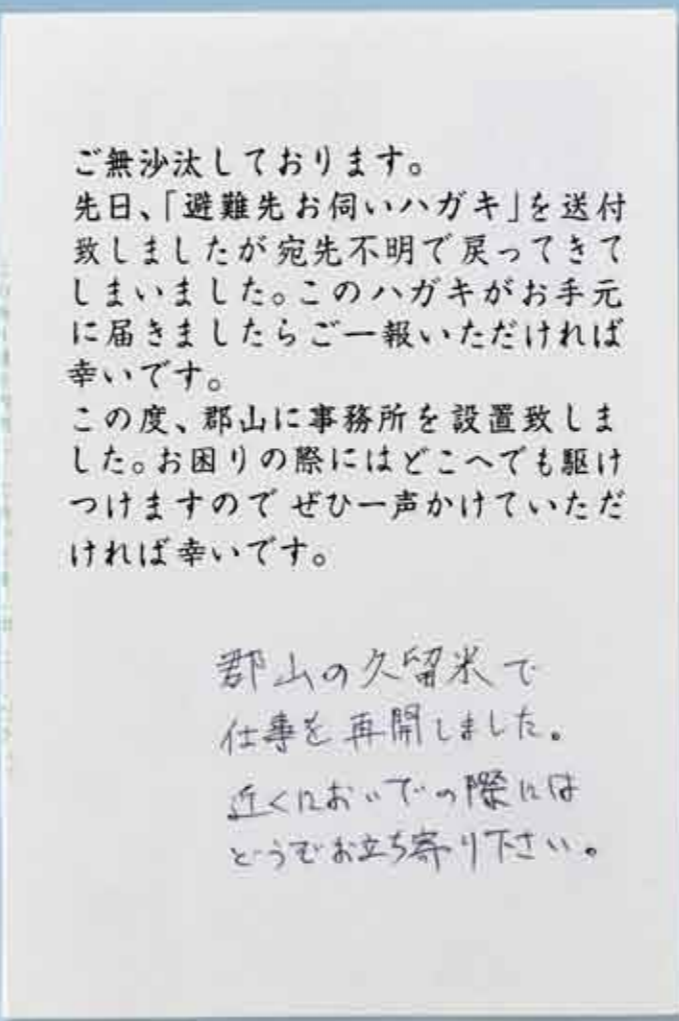 ご無沙汰しております。
先日、「避難先お伺いハガキ」を送付
致しましたが宛先不明で戻ってきて
しまいました。このハガキがお手元
に届きましたらご一報いただければ
幸いです。
この度、郡山に事務所を設置致しま
した。お困りの際にはどこへでも駆け
つけますので ぜひ一声かけていただ
ければ幸いです。
郡山の久留米で
仕事を再開しました。
近くにおいでの際には
どうぞお立ち寄り下さい。